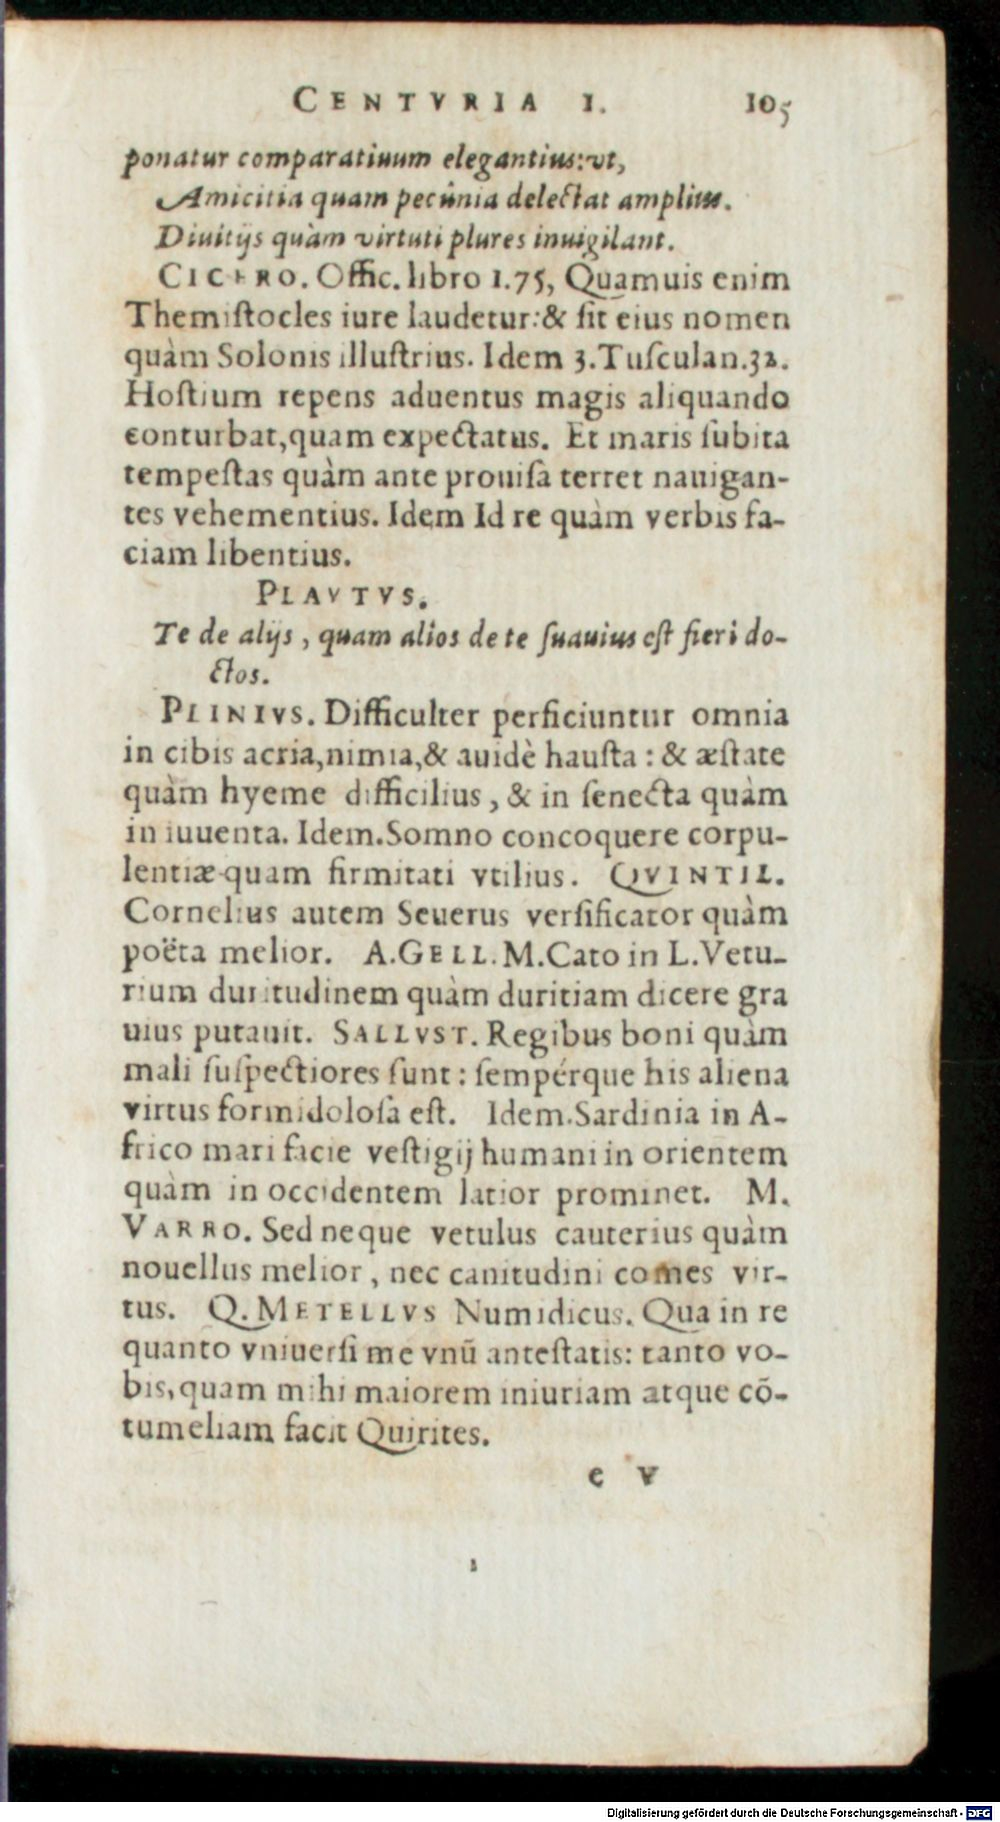 CENTVRIA I. 105
ponatur comparatiuum elegantius: vt,
Amicitia quam pecunia delectat amplius.
Diuitijs quàm virtuti plures inuigilant.
CICERO. Offic. libro 1.75, Quamuis enim
Themiſtocles iure laudetur: & ſit eius nomen
quàm Solonis illuſtrius. Idem 3. Tuſculan. 32.
Hoſtium repens aduentus magis aliquando
conturbat, quam expectatus. Et maris ſubita
tempeſtas quàm ante prouiſa terret nauigan-
tes vehementius. Idem Id re quàm verbis fa-
ciam libentius.
PLAVTVS.
Te de alijs, quam alios de te ſuauius eſt fieri do-
ctos.
PLINIVS. Difficulter perficiuntur omnia
in cibis acria, nimia, & auidè hauſta: & æſtate
quàm hyeme difficilius, & in ſenecta quàm
in iuuenta. Idem. Somno concoquere corpu-
lentiæ quam firmitati vtilius. QVINTIL.
Cornelius autem Seuerus verſificator quàm
poëta melior. A. GELL. M. Cato in L. Vetu-
rium duritudinem quàm duritiam dicere gra
uius putauit. SALLVST. Regibus boni quàm
mali ſuſpectiores ſunt: ſempérque his aliena
virtus formidoloſa eſt. Idem. Sardinia in A-
frico mari facie veſtigij humani in orientem
quàm in occidentem latior prominet. M.
VARRO. Sed neque vetulus cauterius quàm
nouellus melior, nec canitudini comes vir-
tus. Q. METELLVS Numidicus. Qua in re
quanto vniuerſi me vnũ anteſtatis: tanto vo-
bis, quam mihi maiorem iniuriam atque cõ-
tumeliam facit Quirites.
e v
Digitalisierung gefördert durch die Deutsche Forschungsgemeinschaft - DFG